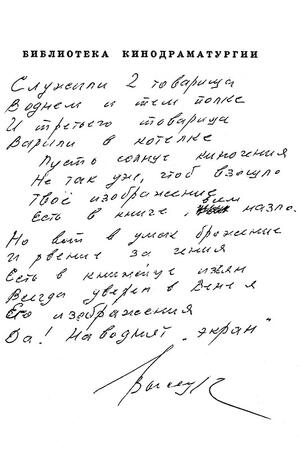 БИБЛИОТЕКА КИНОДРАМАТУРГИИ
Служили 2 товарища
В однем и тем полке
И третьего товарища
Варили в котелке
Пусть солнце киногения
Не так уже, чтоб взошло
Твоё изображение
Есть в книге, всем назло.
Но вот в умах брожение
И рвение за гения
Есть в книжице изъян
Всегда уверен в Вене я
Его изображения
Да! Наводнят „экран"